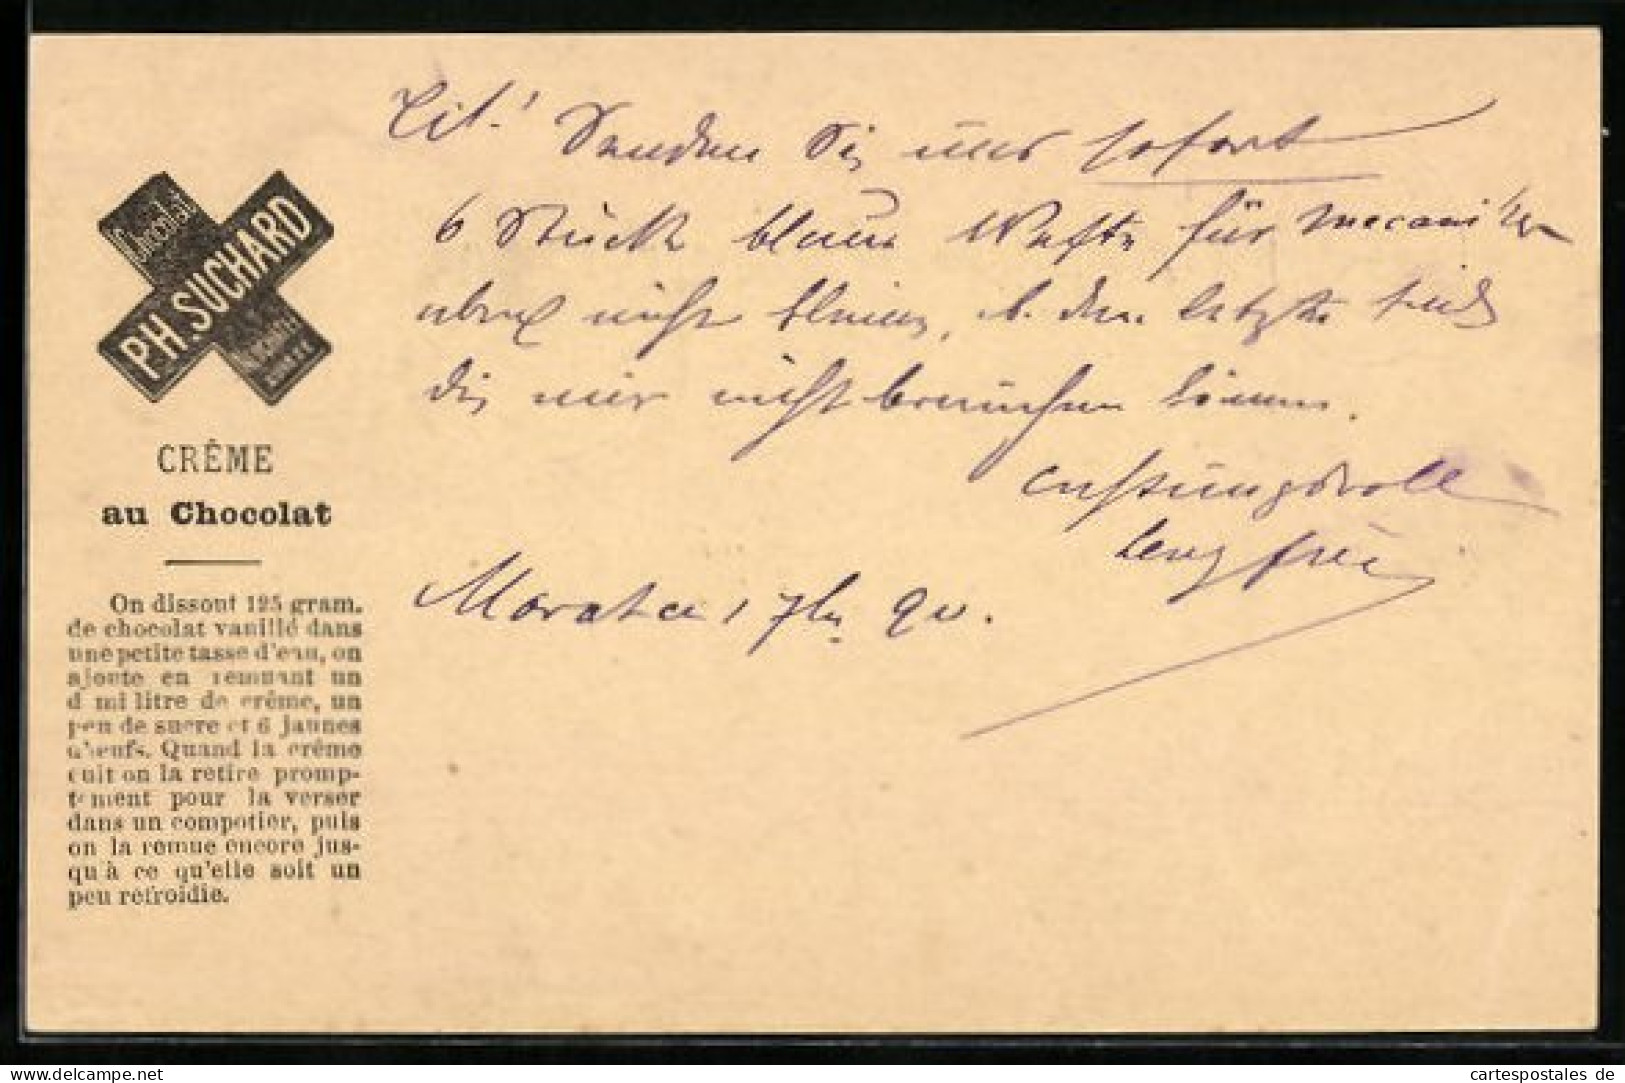 Chocolat
PH. SUCHARD
Neuchâtel
SUISSE
CRÊME
au Chocolat
On dissout 125 gram.
de chocolat vanillé dans
une petite tasse d'eau, on
ajoute en remuant un
demi litre de crême, un
peu de sucre et 6 jaunes
d'œufs. Quand la crême
cuit on la retire promp-
tement pour la verser
dans un compotier, puis
on la remue encore jus-
qu'à ce qu'elle soit un
peu refroidie.
Tit.! Senden Sie uns sofort
6 Stück blaue für Mecaniker
aber nicht kleine, den letzte sind
die wir nicht brauchen können.
Achtungsvoll
Morat 7br 90.
cartespostales de